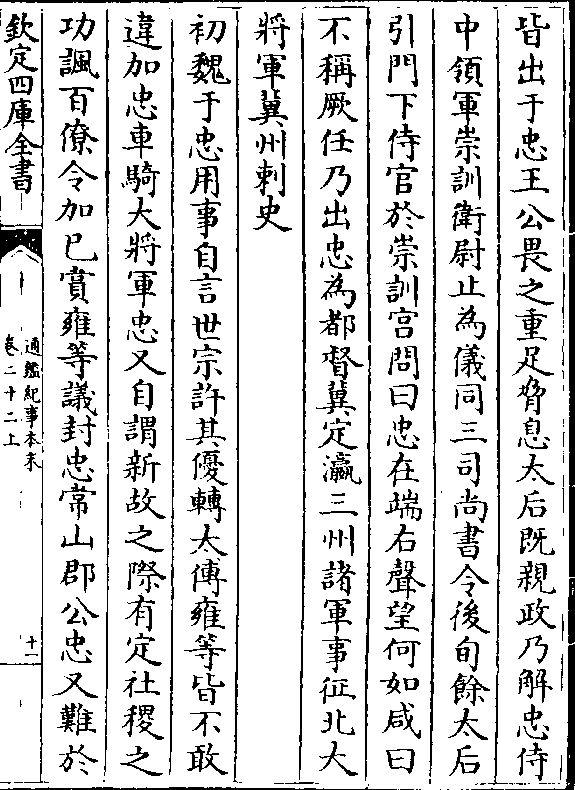 皆出于忠王公畏之重足脅息太后既親政乃解忠侍
中領軍崇訓衛尉止為儀同三司尚書令後旬餘太后
引門下侍官於崇訓宮問曰忠在端右聲望何如咸曰
不稱厥任乃出忠為都督冀定瀛三州諸軍事征北大
將軍冀州刺史
初魏于忠用事自言世宗許其優轉太傅雍等皆不敢
違加忠車騎大將軍忠又自謂新故之際有定社稷之
功諷百僚令加已賞雍等議封忠常山郡公忠又難於
欽定四庫全書
通鑑紀事本末
卷二十二上
十一